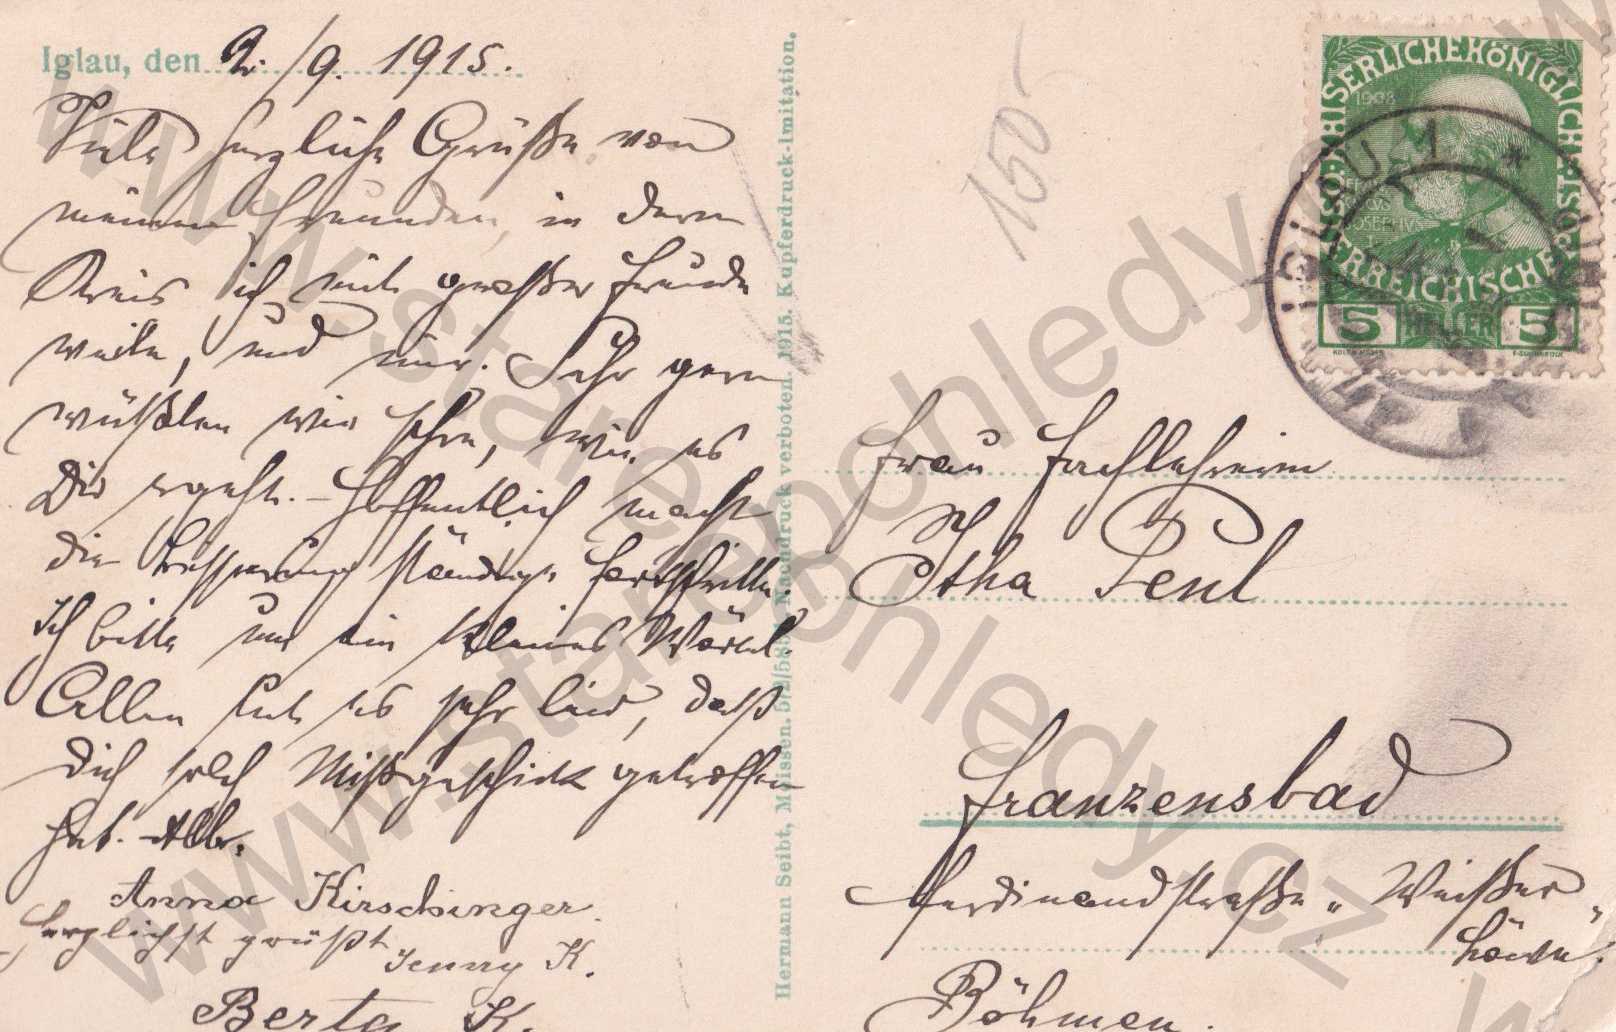 Iglau, den 2./9. 1915.
Viele herzliche Grüße von
meinen Freunden, in deren
Kreis ich mit großer Freude
weile, und nur. Sehr gern
wüßten wir schon, wie es
Dir ergeht. – Hoffentlich macht
die Besserung ständige Fortschritte.
Ich bitte um ein kleines Wörtl.
Allen tut es sehr leid, daß
Dich solch Mißgeschick getroffen
hat. –
Anna Kirschinger.
Herzlichst grüßt Jenny K.
Berta K.
Hermann Seibt, Meissen. Nachdruck verboten. 1915. Kupferdruck-Imitation.
150-
KAISERLICHE KÖNIGLICHE ÖSTERREICHISCHE
1908
5 HELLER 5
IGLAU 1
Frau Fachlehrerin
Itha Penl
Franzensbad
Ferdinandstraße „Weißer
Löwe".
Böhmen.
www.starepohledy.cz
www.starepohledy.cz